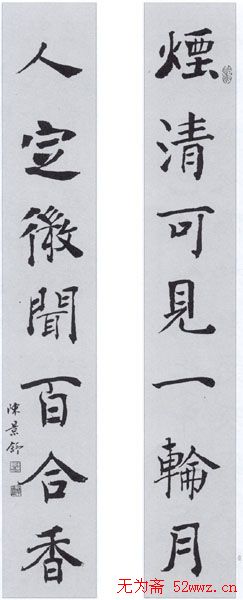 煙清可見一輪月
人定微聞百合香
陳景舒
无为斋 52wwz.cn